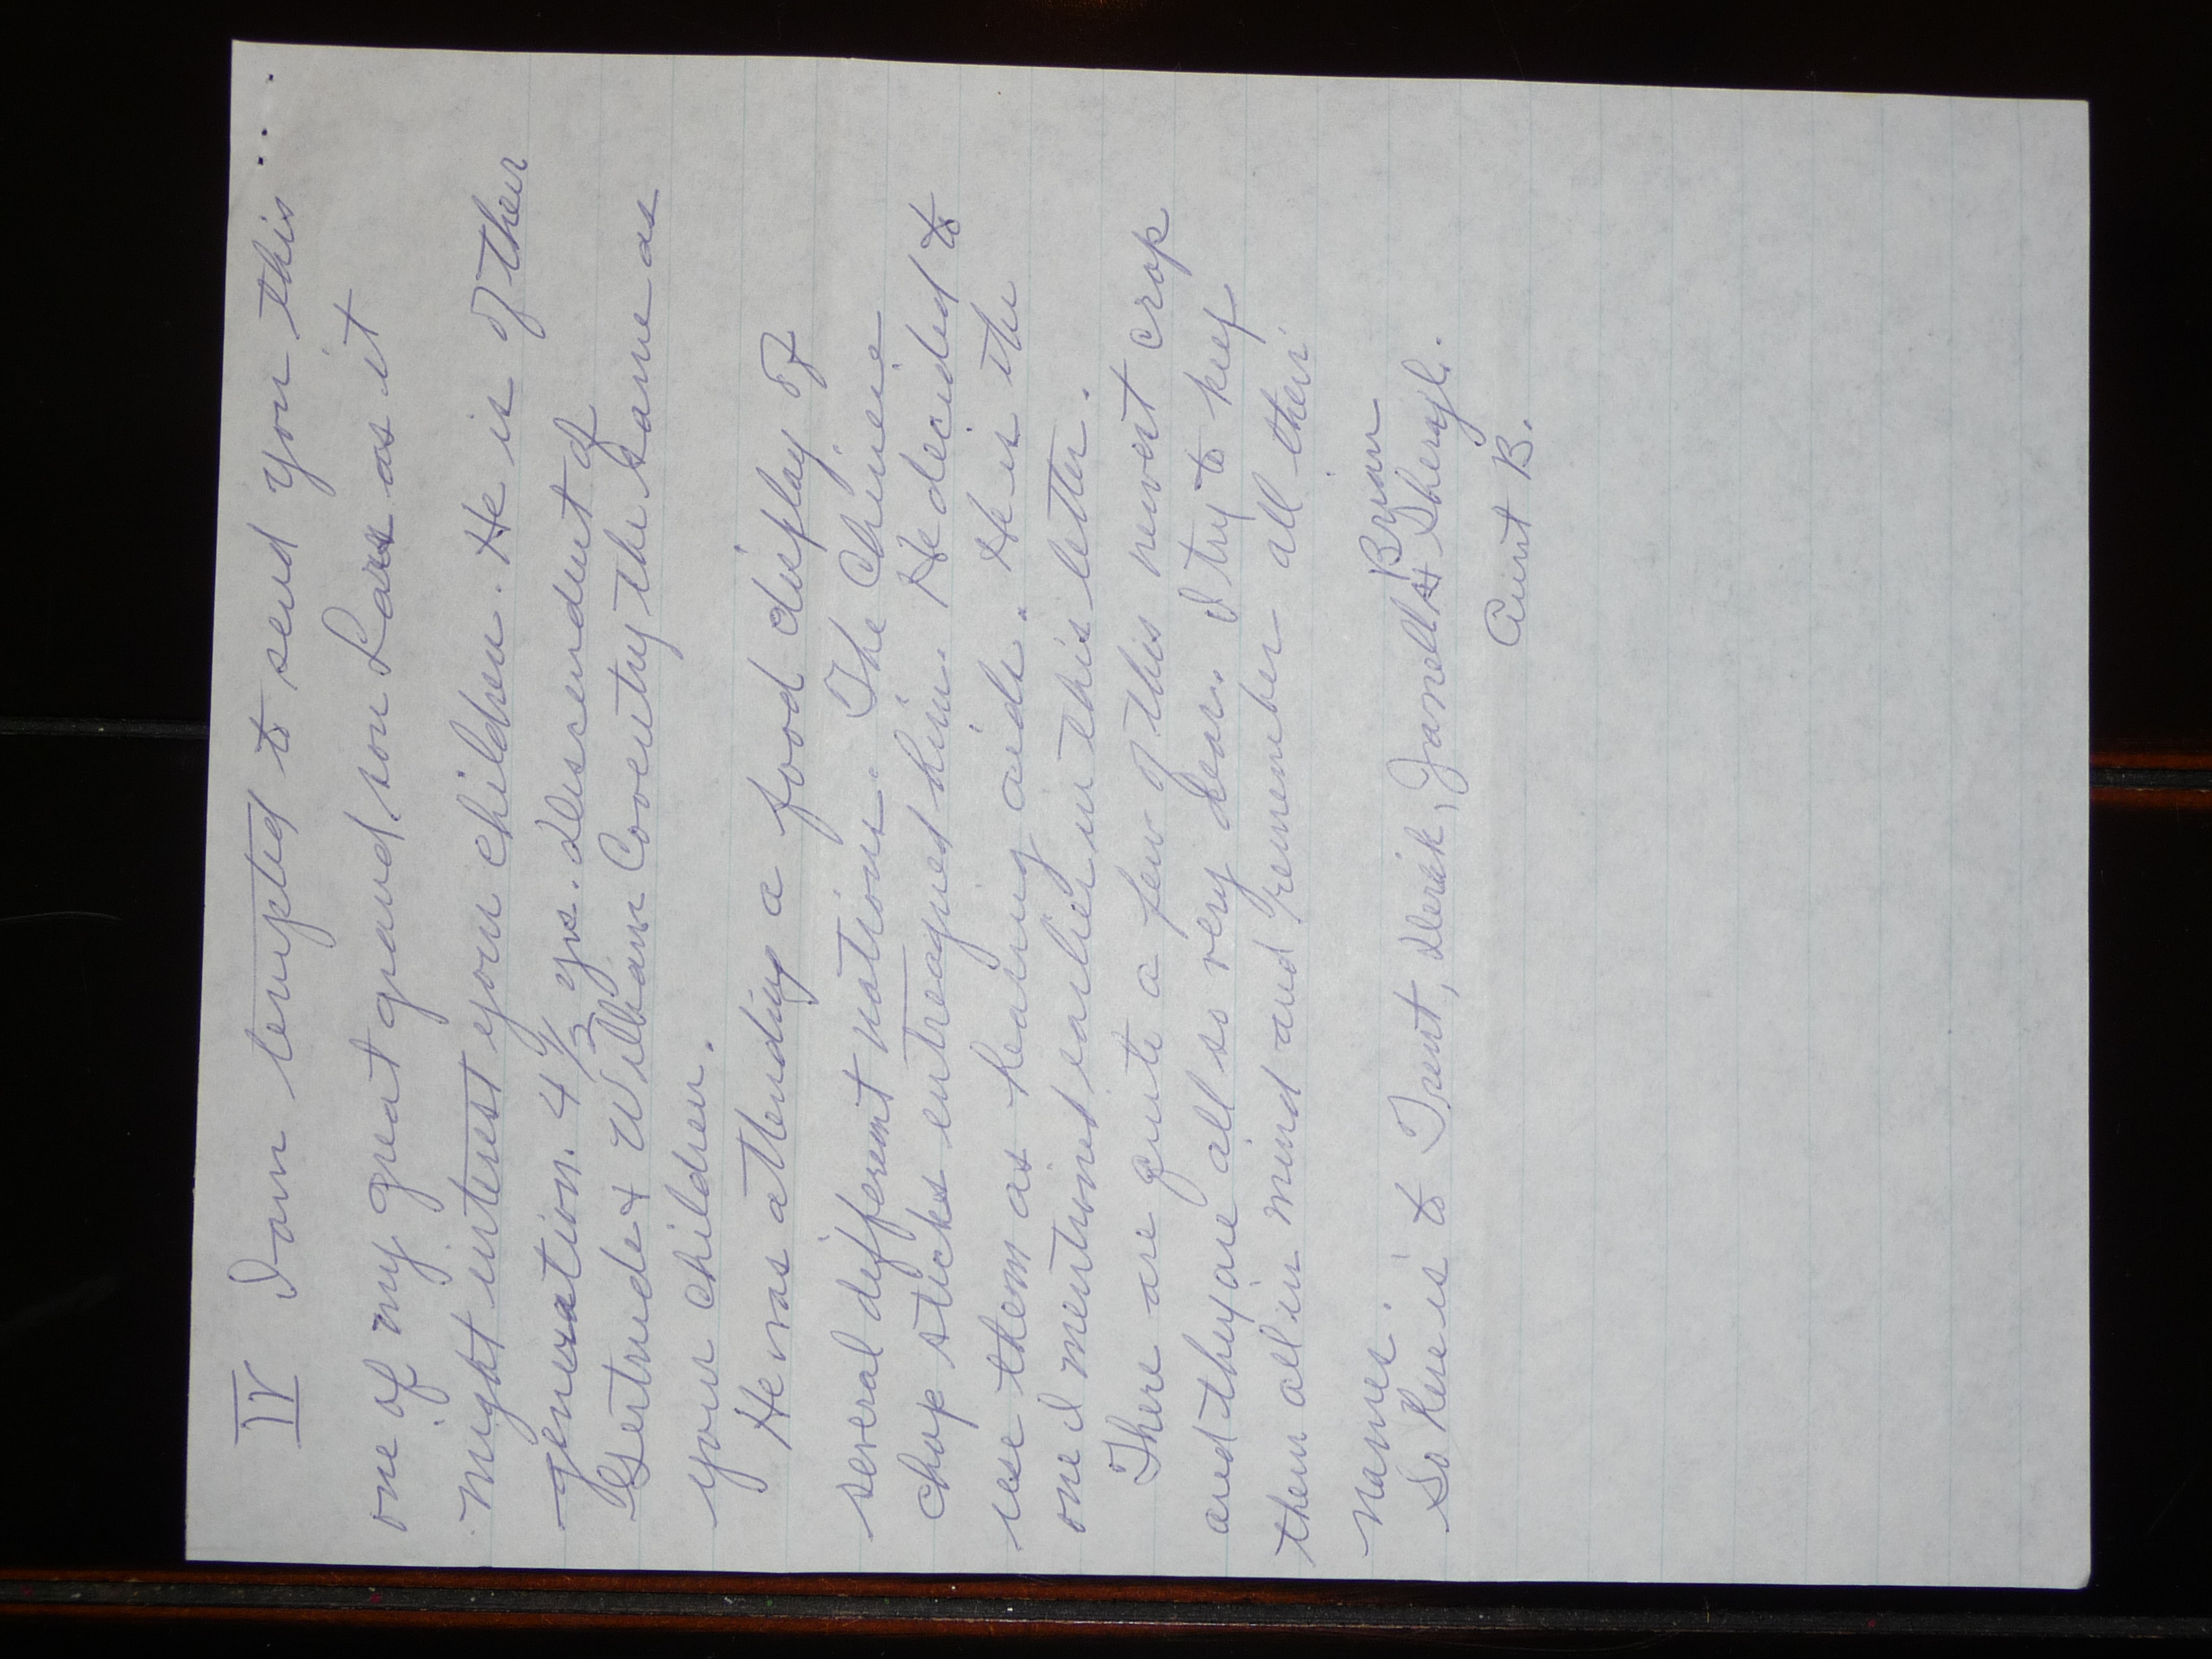 IV I am tempted to send you this ....
one of my great grand son Lars as it
might interest your children. He is of their
generation. 4 1/2 yrs. Descendent of
Gertrude & William Coventry the same as
your children.
He was attending a food display of
several different nations. The Chinese
chop sticks entreagued him. He decided to
use them as hearing aids. He is the
one I mentioned earlier in this letter.
There are quite a few of this newest crop
and they are all so very dear. I try to keep
them all in mind and remember all their
names.
So here is to Trent, Derik, Janella & Bryan Sheragl.
Aunt B.